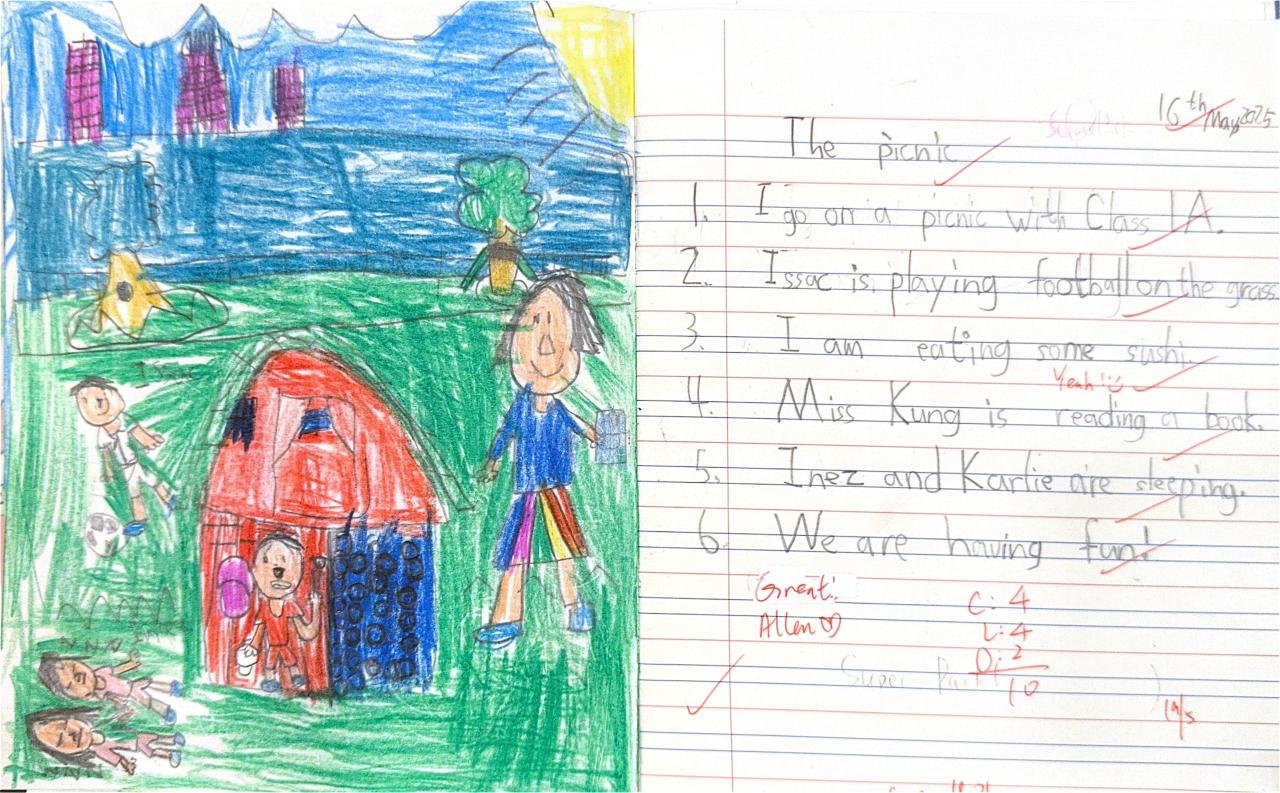 Issac
16th May 2025
The picnic
1. I go on a picnic with Class 1A.
2. Issac is playing football on the grass.
3. I am eating some sushi.
Yeah!
4. Miss Kung is reading a book.
5. Inez and Karlie are sleeping.
6. We are having fun!
Great!
Allen
C: 4
L: 4
O: 2
10
Super
19/5